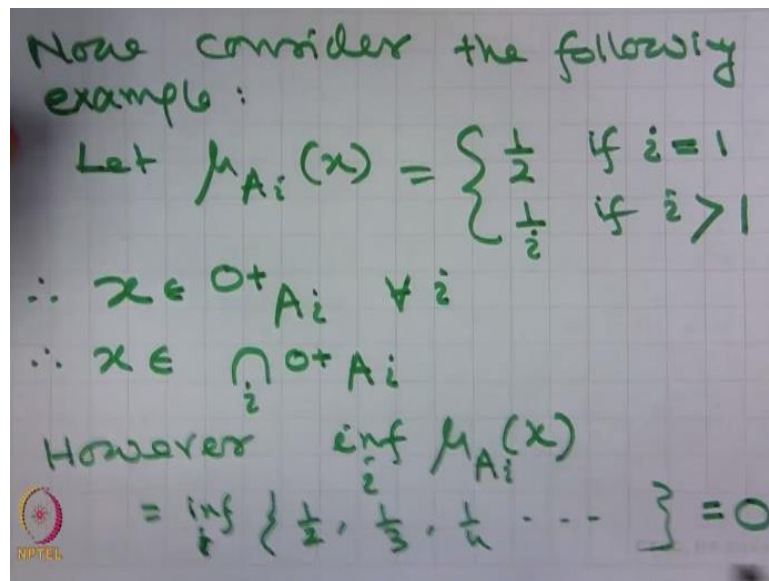 Now consider the following
example:
Let μ_{A_i}(x) = { 1/2 if i = 1
1/i if i > 1
∴ x ∈ ^{0+}A_i ∀ i
∴ x ∈ ⋂_i ^{0+}A_i
However inf_i μ_{A_i}(x)
= inf_i { 1/2, 1/3, 1/4 ... } = 0
NPTEL